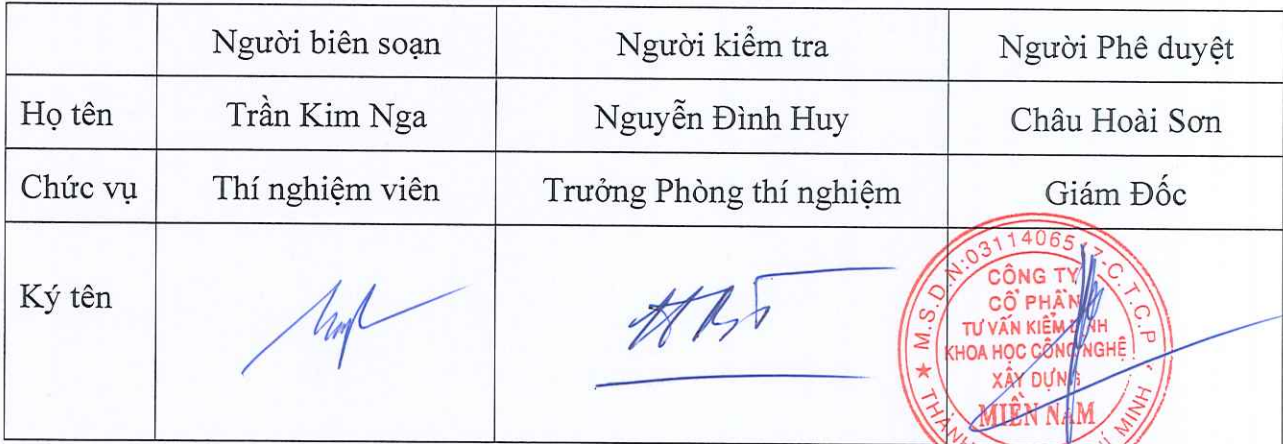 Người biên soạn Người kiểm tra Người Phê duyệt
Họ tên Trần Kim Nga Nguyễn Đình Huy Châu Hoài Sơn
Chức vụ Thí nghiệm viên Trưởng Phòng thí nghiệm Giám Đốc
Ký tên
M.S.D.N:0311406517-C.T.C.P
CÔNG TY
CỔ PHẦN
TƯ VẤN KIỂM ĐỊNH
KHOA HỌC CÔNG NGHỆ
XÂY DỰNG
MIỀN NAM